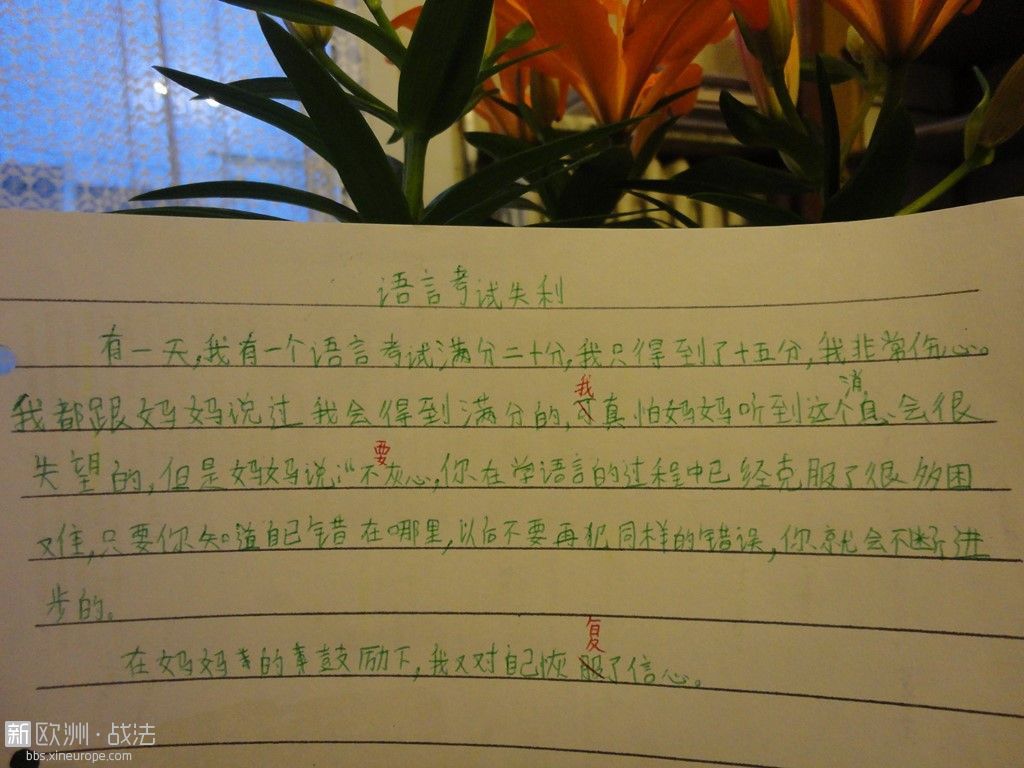 语言考试失利
有一天,我有一个语言考试满分二十分,我只得到了十五分,我非常伤心。
我都跟妈妈说过 我会得到满分的,我真怕妈妈听到这个消息、会很
失望的,但是妈妈说:“不要灰心,你在学语言的过程中已经克服了很多困
难,只要你知道自己错在哪里,以后不要再犯同样的错误,你就会不断进
步的。
在妈妈的鼓励下,我又对自己恢复了信心。
新欧洲·战法
bbs.xineurope.com